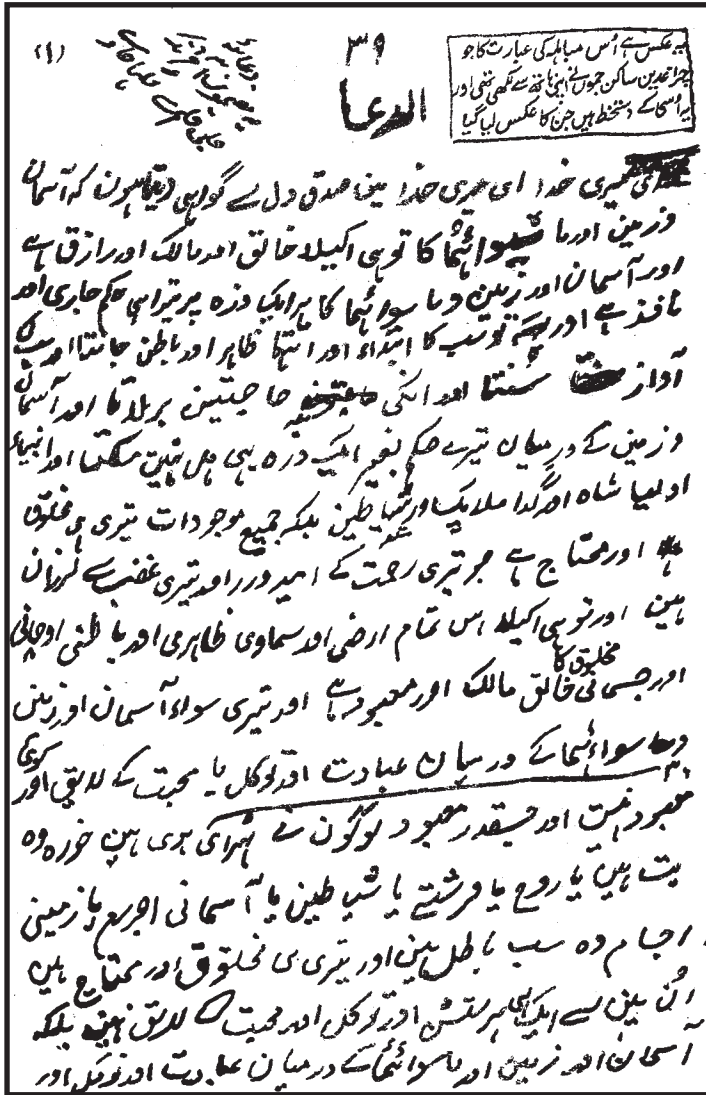 یہ عکس ہے اُس مباہلہ کی عبارت کا جو
چراغدین ساکن جموں نے اپنی ہاتھ سے لکھی تھی اور
یہ اُسی کے دستخط ہیں جن کا عکس لیا گیا
۳۹
(۱)
الدعا
ای میری خدا ای میری خدا مین صدق دل سے گواہی دیتا ہون کہ آسمان
و زمین اور ما سوائہما کا تو ہی اکیلا خالق اور مالک اور رازق ہے
اور آسمان اور زمین و ما سوائہما کا ہر ایک ذرہ پر تیرا ہی حکم جاری اور
نافذ ہے اور تو سب کا ابتداء اور انتہا ظاہر اور باطن جانتا اور سب کی
آواز سُنتا اور انکی حاجتین بر لاتا اور آسمان
و زمین کے درمیان تیرے حکم بغیر ایک ذرہ بھی ہل نہین سکتا اور انبیاء
اولیا شاہ اور گدا ملایک اور شیاطین بلکہ جمیع موجودات تیری ہی مخلوق
اور محتاج ہے جو تیری رحمت کے امیدوار اور تیری غضب سے لرزان
ہین اور تو ہی اکیلا اس تمام ارضی اور سماوی ظاہری اور باطنی روحانی
اور جسمانی مخلوق کا خالق مالک اور معبود ہے اور تیری سواء آسمان اور زمین
و ما سوائہما کے درمیان عبادت اور توکل یا محبت کے لایق اور کوئی
معبود نہیں اور جسقدر معبود لوگون نے ٹہرائی ہوی ہین خواہ وہ
بت ہین یا روح یا فرشتے یا شیاطین یا آسمانی اجرام یا زمینی
اجسام وہ سب باطل ہین اور تیری ہی مخلوق اور محتاج ہین
اُن مین سے ایک بھی پرستش اور توکل اور محبت کے لایق نہین بلکہ
آسمان اور زمین اور ما سوائہما کے درمیان عبادت اور توکل اور